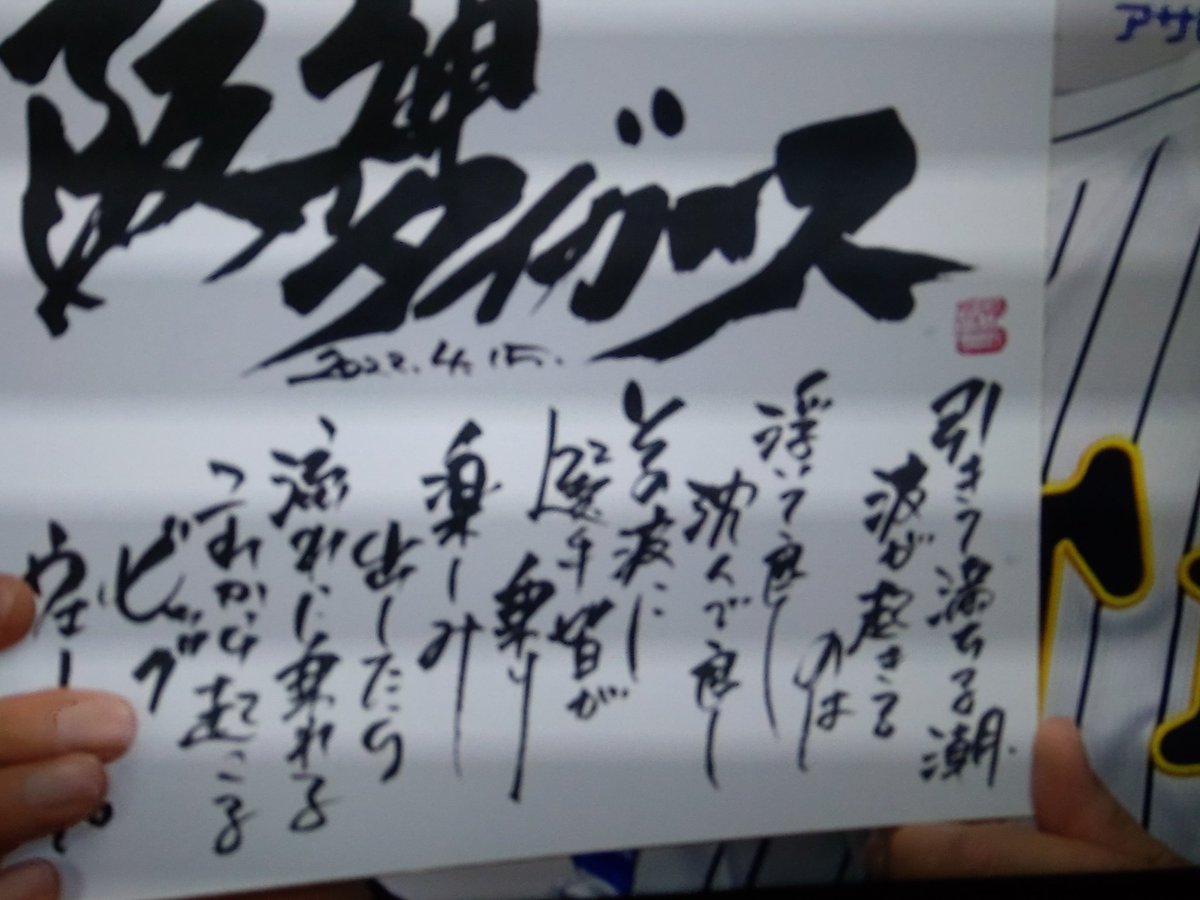 阪神
タイガース
2022.4.15.
引きて満ちる潮
波が起きてる
のは
浮いて良し
沈んで良し
その波に
選手皆が
乗り
楽しみ
出したら
流れに乗れる
これから起こる
ビッグ
ウェーブ
アサヒ